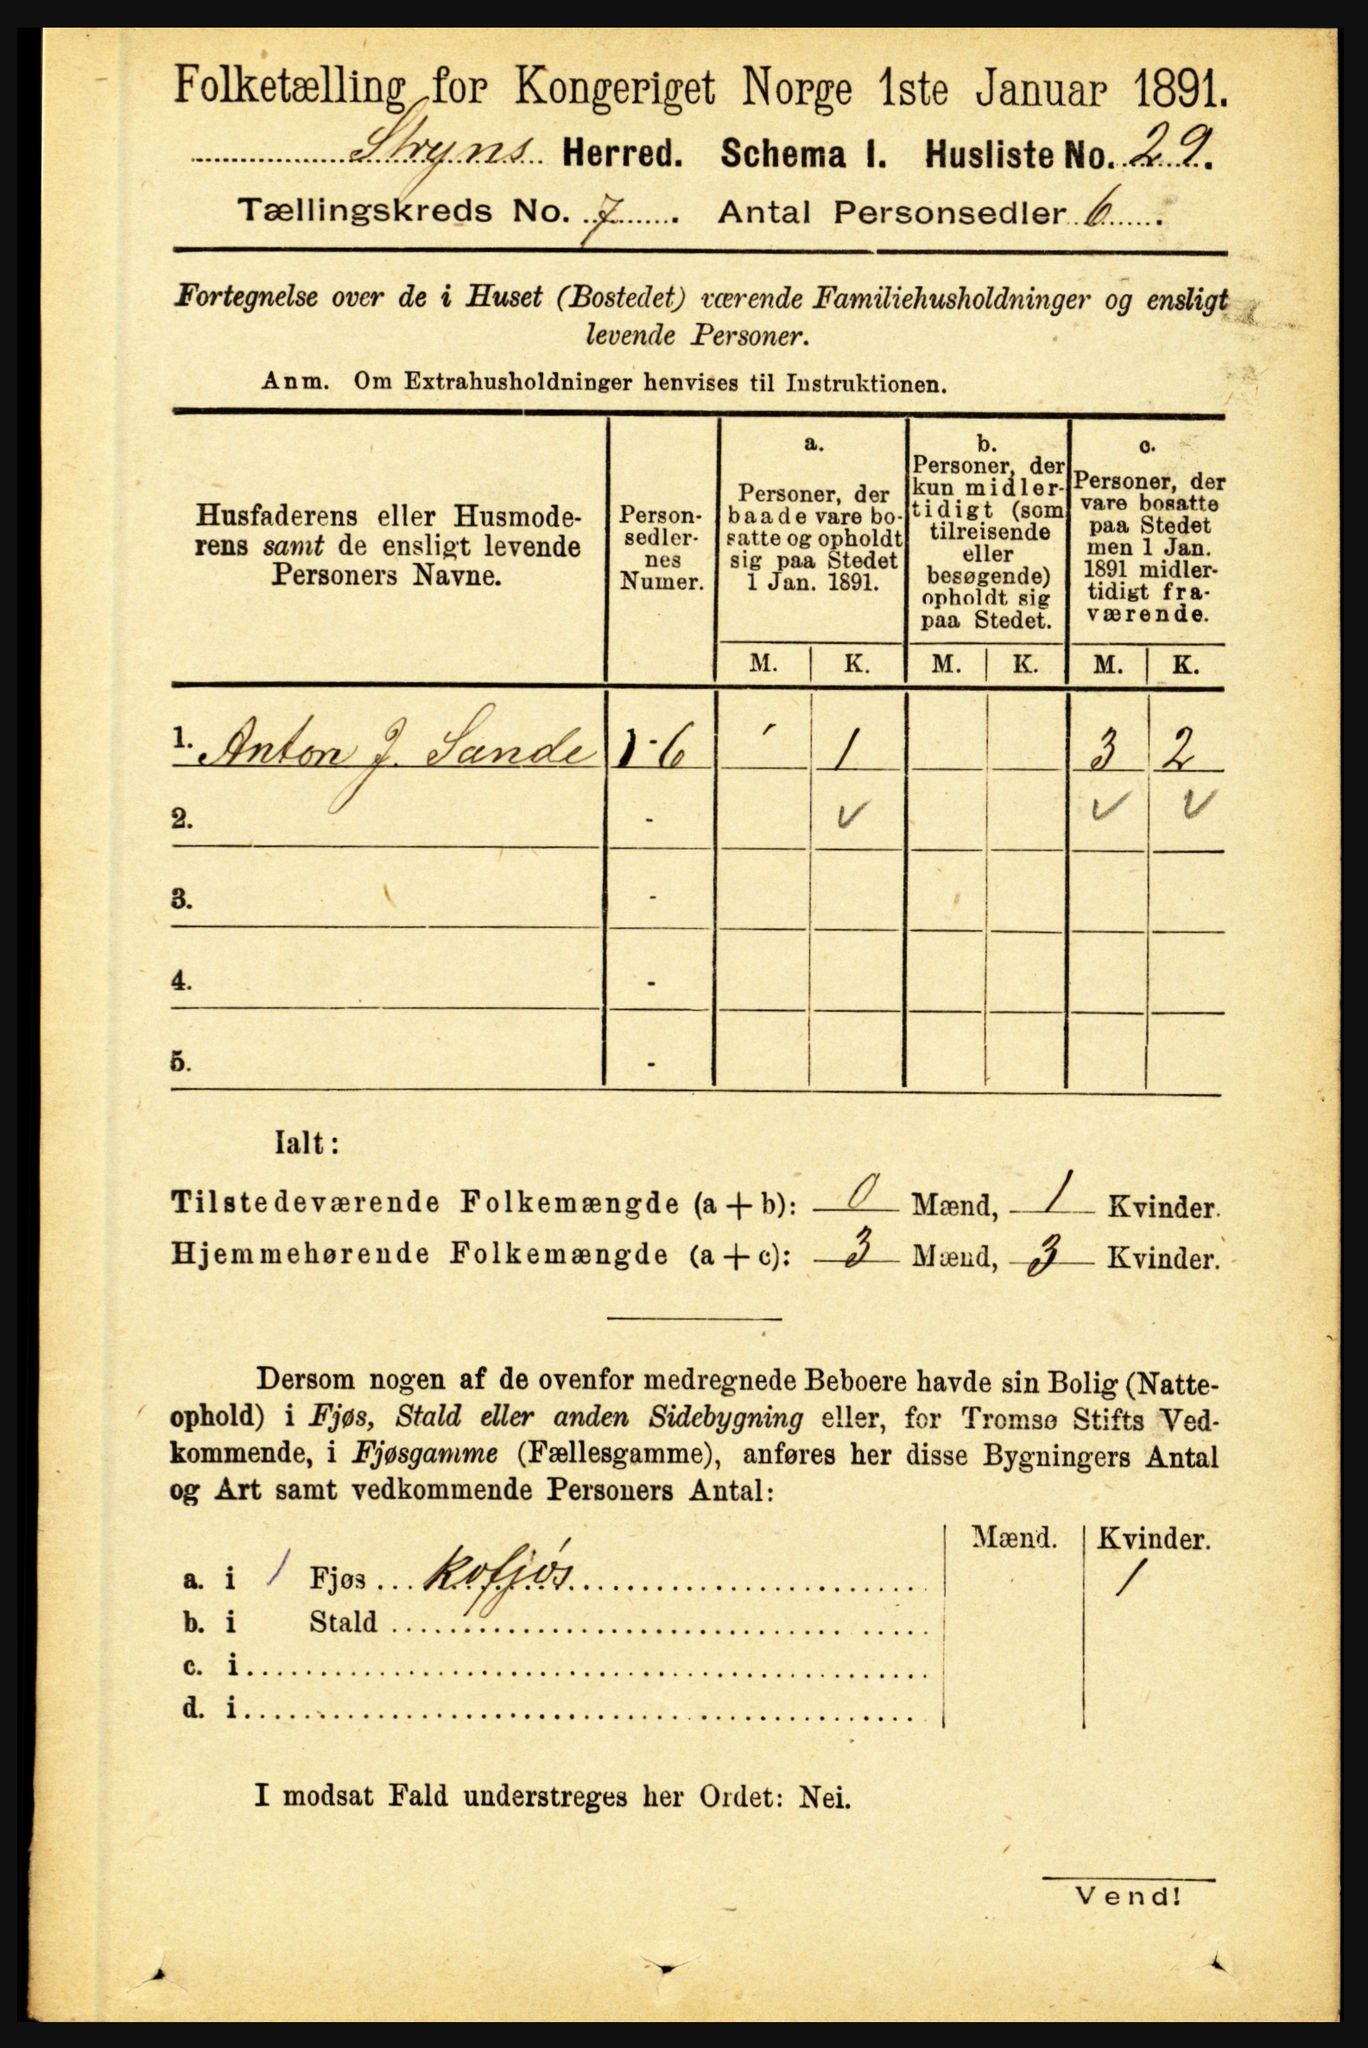 Folketælling for Kongeriget Norge 1ste Januar 1891.
Stryns Herred. Schema I. Husliste No. 29.
Tællingskreds No. 7. Antal Personsedler 6.
Fortegnelse over de i Huset (Bostedet) værende Familiehusholdninger og ensligt
levende Personer.
Anm. Om Extrahusholdninger henvises til Instruktionen.
Husfaderens eller Husmode-
rens samt de ensligt levende
Personers Navne.
Person-
sedler-
nes
Numer.
a.
Personer, der
baade vare bo-
satte og opholdt
sig paa Stedet
1 Jan. 1891.
b.
Personer, der
kun midler-
tidigt (som
tilreisende
eller
besøgende)
opholdt sig
paa Stedet.
c.
Personer, der
vare bosatte
paa Stedet
men 1 Jan.
1891 midler-
tidigt fra-
værende.
M. K. M. K. M. K.
1. Anton J. Sande 1-6 ' 1 3 2
2. - ✓ ✓ ✓
3. -
4. -
5. -
Ialt:
Tilstedeværende Folkemængde (a + b): 0 Mænd, 1 Kvinder.
Hjemmehørende Folkemængde (a + c): 3 Mænd, 3 Kvinder.
Dersom nogen af de ovenfor medregnede Beboere havde sin Bolig (Natte-
ophold) i Fjøs, Stald eller anden Sidebygning eller, for Tromsø Stifts Ved-
kommende, i Fjøsgamme (Fællesgamme), anføres her disse Bygningers Antal
og Art samt vedkommende Personers Antal:
Mænd. Kvinder.
a. i 1 Fjøs ... Kofjøs 1
b. i Stald
c. i
d. i
I modsat Fald understreges her Ordet: Nei.
Vend!